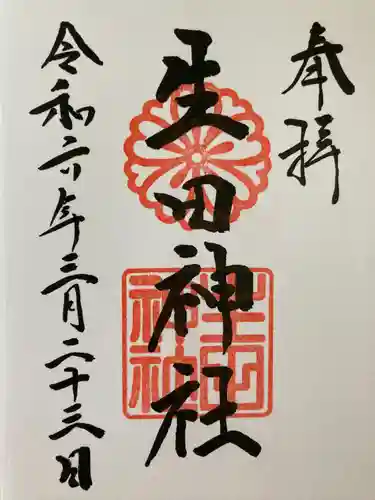 奉拝
生田神社
生田神社
令和六年三月二十三日